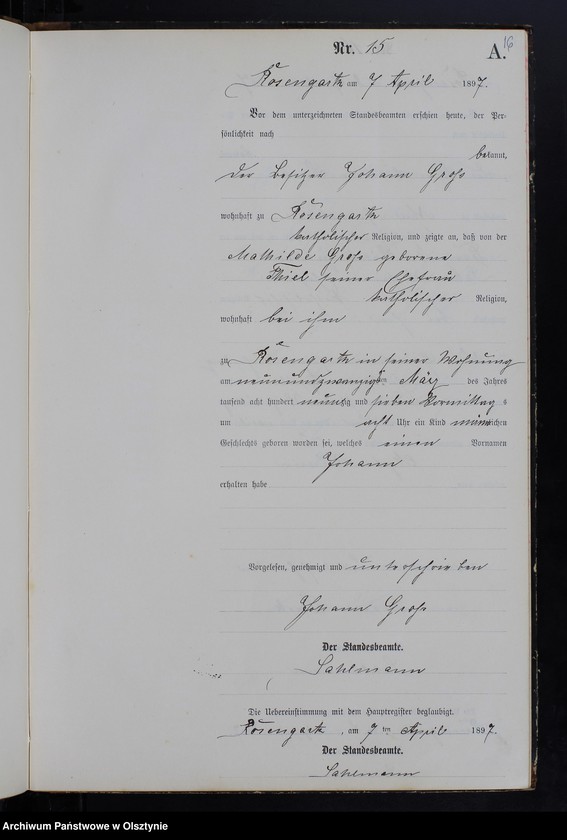 16
Nr. 15 A.
Rosengarth am 7 April 1897.
Vor dem unterzeichneten Standesbeamten erschien heute, der Per-
sönlichkeit nach
bekannt,
der Besitzer Johann Groß
wohnhaft zu Rosengarth
katholischer Religion, und zeigte an, daß von der
Mathilde Groß geborene
Thiel seiner Ehefrau
katholischer Religion,
wohnhaft bei ihm
zu Rosengarth in seiner Wohnung
am neunundzwanzigsten März des Jahres
tausend acht hundert neunzig und sieben Vormittags
um acht Uhr ein Kind männlichen
Geschlechts geboren worden sei, welches einen Vornamen
Johann
erhalten habe
Vorgelesen, genehmigt und unterschrieben
Johann Groß
Der Standesbeamte.
Sahlmann
Die Uebereinstimmung mit dem Hauptregister beglaubigt.
Rosengarth, am 7ten April 1897.
Der Standesbeamte.
Sahlmann
Archiwum Państwowe w Olsztynie